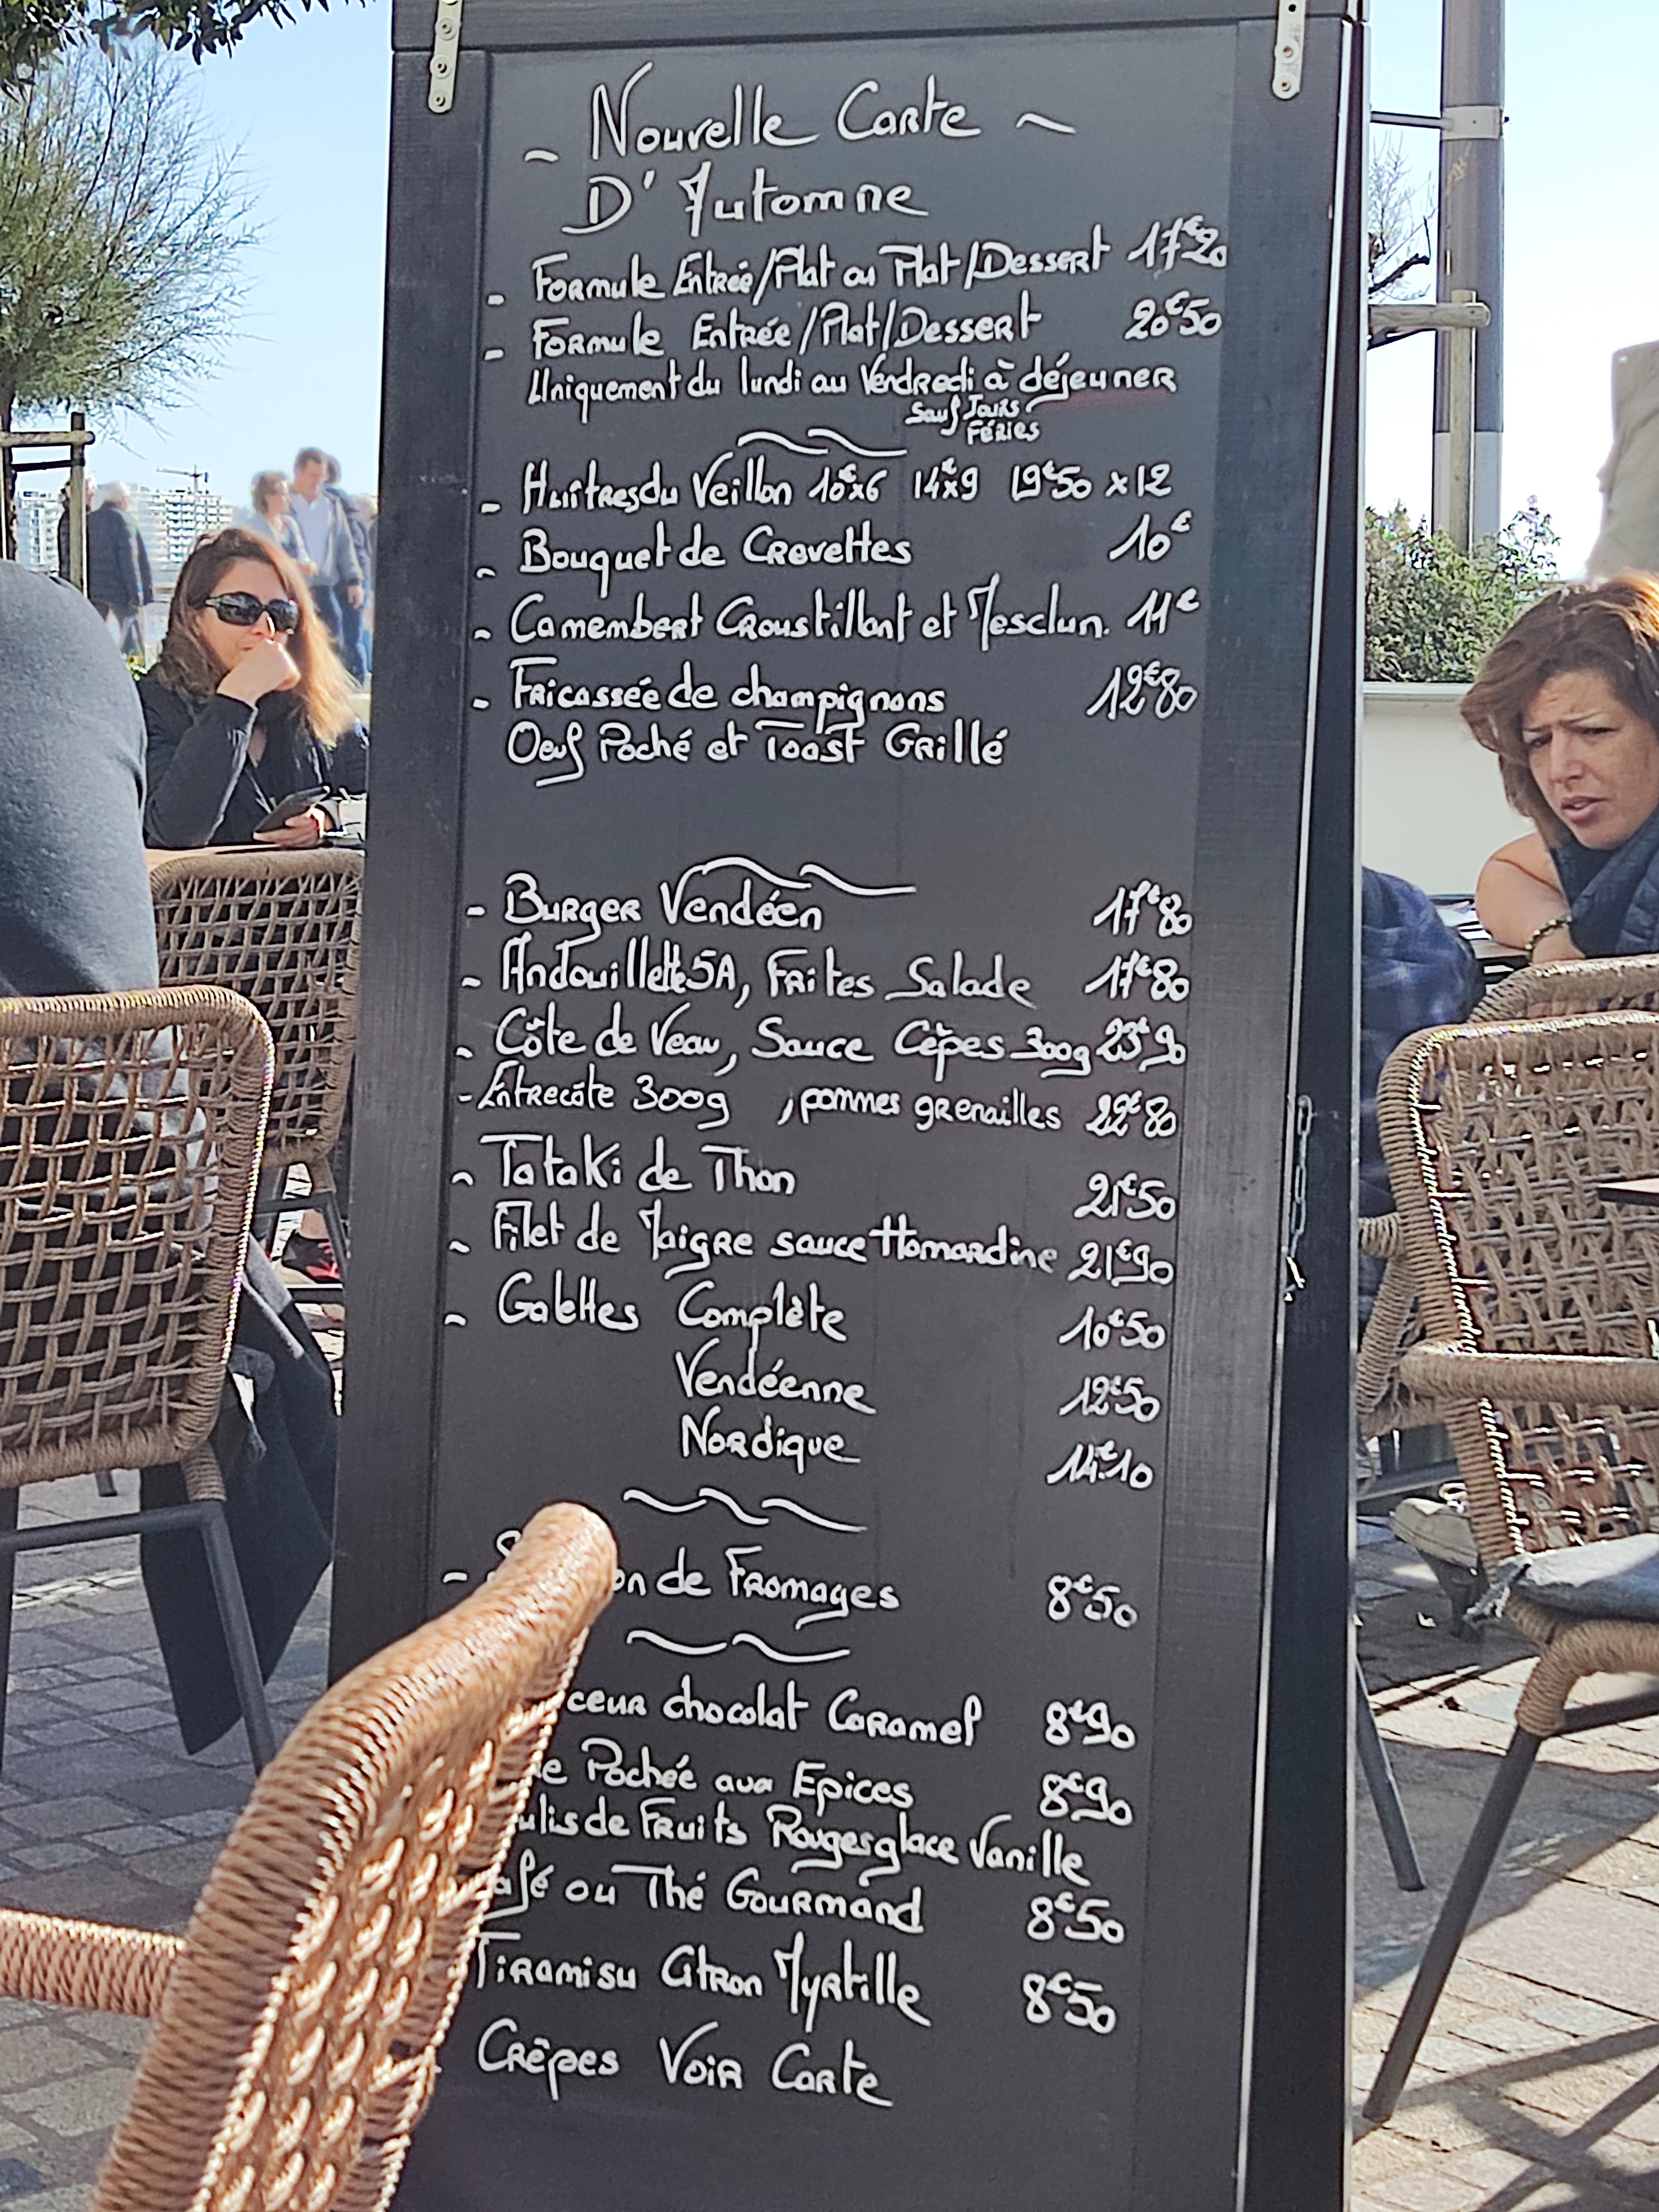 ~ Nouvelle Carte ~
D'Automne
- Formule Entrée/Plat ou Plat/Dessert 17€20
- Formule Entrée/Plat/Dessert 20€50
Uniquement du lundi au Vendredi à déjeuner
Sauf Jours
Fériés
- Huîtres du Veillon 10€x6 14€x9 19€50 x12
- Bouquet de Crevettes 10€
- Camembert Croustillant et Mesclun. 11€
- Fricassée de champignons 12€80
Oeuf Poché et Toast Grillé
- Burger Vendéen 17€80
- Andouillette 5A, Frites Salade 17€80
- Côte de Veau, Sauce Cèpes 300g 23€90
- Entrecôte 300g , pommes grenailles 22€80
- Tataki de Thon 21€50
- Filet de Maigre sauce Homardine 21€90
- Galettes Complète 10€50
Vendéenne 12€50
Nordique 14€10
- on de Fromages 8€50
ceur chocolat Caramel 8€90
e Pochée aux Epices 8€90
ulis de Fruits Rouges glace Vanille
afé ou Thé Gourmand 8€50
Tiramisu Citron Myrtille 8€50
Crêpes Voir Carte